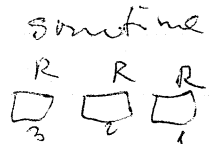 sometime
R R R
3 2 1